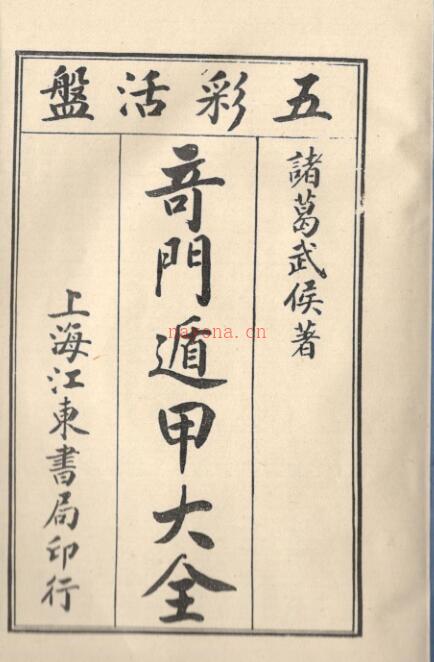 五彩活盤
諸葛武侯著
奇門遁甲大全
上海江東書局印行
nayona.cn